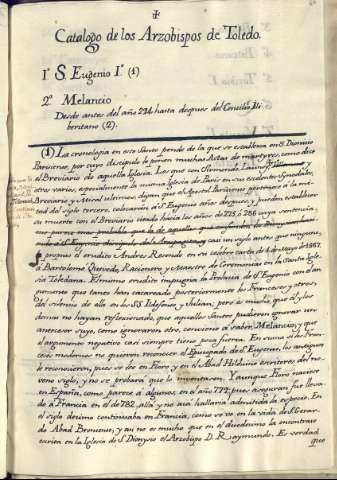 Catalogo de los Arzobispos de Toledo.
1º S. Eugenio Iº (1)
2º Melancio
Desde antes del año 294 hasta despues del Concilio Ili
beritano (2).
(1) La cronologia en este Santo pende de la que se establezca en S. Dionisio
Parisiense, por cuyo discipulo le ponen muchas Actas de martyres, como dice
el Breviario de aquella Iglesia. Los que con Sirmondo, Launoy, y
otros varios, especialmente la misma Iglesia de Paris en sus excelentes
Breviario, y Misal ultimos, digan que el Apostol Parisiense pertenece à la mi-
tad del siglo tercero, colocaran à S. Eugenio años despues, y pueden establecer
su muerte con el Breviario citado hacia los años de 275, ò 286 cuya sentencia,
casi un siglo antes que ninguno,
propuso el erudito Andres Resende en su celebre carta de 4 de Mayo de 1567
à Bartolome Quevedo, Racionero y Maestro de Ceremonias en la Santa Igle-
sia Toledana. El mismo erudito impugna la Prelacia de S. Eugenio con el ar-
gumento que tanto han exagerado posteriormente los Franceses y otros,
del silencio de ella en los SS. Ildefonso, y Julian; pero es mucho, que el y los
demas no hayan reflexionado, que aquellos Santos pudieron ignorar un
antecesor suyo, como ignoraron otro, convienio à saber Melancio, y que
el argumento negativo casi siempre tiene poca fuerza. En suma si los Fran-
ceses modernos no quieren reconocer el Episcopado de S. Eugenio, los antiguos
le reconocieron, pues se lee en Floro y en el Abad Hilduino escritores del no-
veno siglo, y no se probara que lo inventaron. Y aunque Floro naciese
en España, como parece à algunos, en el año 779, pues aseguran fue lleva-
do à Francia en el de 782, alla y no aca hallaria admitida la especie. En
el siglo decimo continuaba en Francia, como se ve en la vida de S. Gerar-
do Abad Broniense, y aun no es mucho que en el duodecimo la encontrase
escrita en la Iglesia de S. Dionysio el Arzobispo D. Raymundo. Es verdad
que